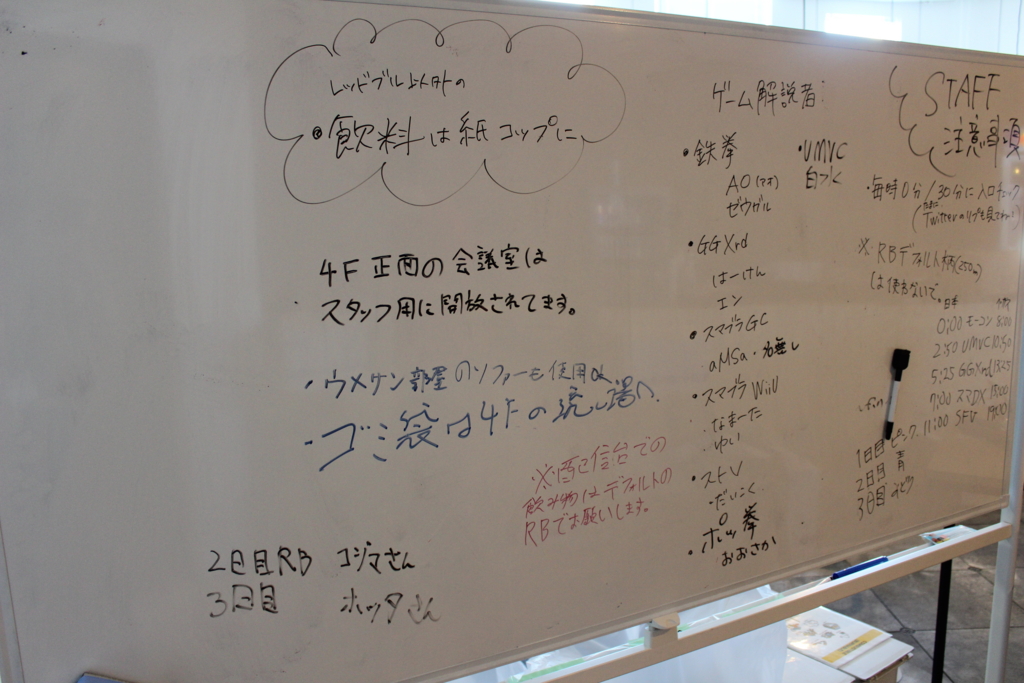 レッドブル以外の
◎飲料は紙コップに
4F 正面の会議室は
スタッフ用に開放されてます。
・ウメサン部屋のソファーも使用
・ゴミ袋は4Fの流し場へ
※配信台での
飲み物はデフォルトの
RBでお願いします。
2日目RB コジマさん
3日目 ホッタさん
ゲーム解説者:
・鉄拳
AO(アオ)
ゼウガル
・UMVC
白水
・GGXrd
はーけん
エン
・スマブラGC
aMSa・名無し
・スマブラWiiU
なまーた
ゆい
・ストV
だいこく
・ポッ拳
おおさか
STAFF
注意事項
・毎時0分/30分に入口チェック
※RBデフォルト柄(250ml)
は使わないで。
日本
0:00 モーコン 8:00
2:50 UMVC 10:50
5:25 GGXrd 13:25
7:00 スマDX 15:00
11:00 SFV 19:00
1日目 ピンク
2日目 青
3日目